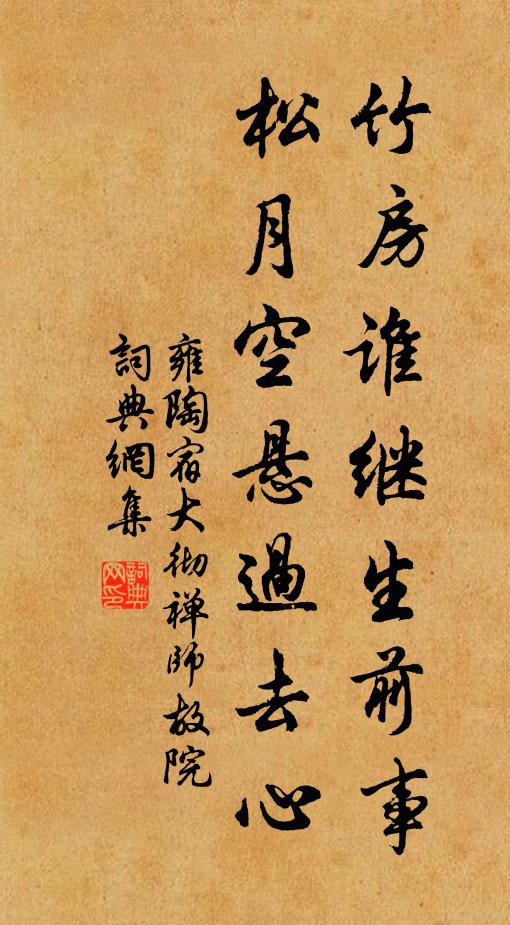 竹房谁继生前事
松月空悬過去心
雍陶宿大彻禅師故院
詞典網集
詞典網印